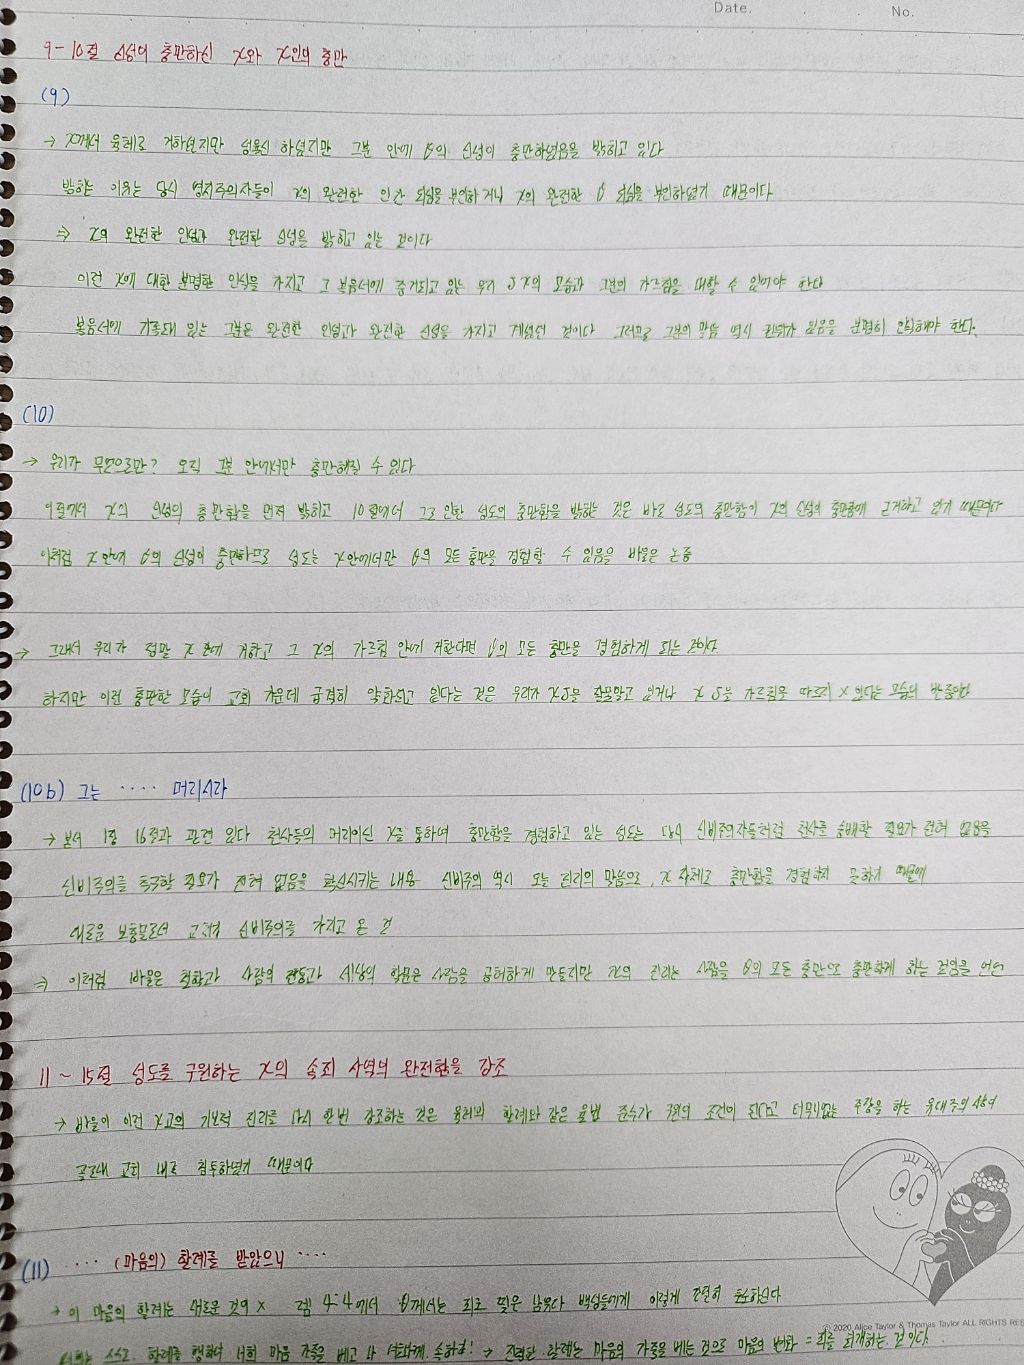 Date.
No.
9-10절 신성이 충만하신 X와 X인의 충만
(9)
→ X께서 육체로 거하셨지만 성육신 하셨지만 그분 안에 θ의 신성이 충만하셨음을 밝히고 있다
밝히는 이유는 당시 영지주의자들이 X의 완전한 인간 되심을 부인하거나 X의 완전한 θ 되심을 부인하였기 때문이다
⇒ X의 완전한 인성과 완전한 신성을 밝히고 있는 것이다
이런 X에 대한 분명한 인식을 가지고 그 복음서에 증거되고 있는 우리 JX의 모습과 그분의 가르침을 대할 수 있어야 한다
복음서에 기록돼 있는 그분은 완전한 인성과 완전한 신성을 가지고 계셨던 것이다 그러므로 그분의 말씀 역시 권위가 있음을 분명히 인식해야 한다.
(10)
→ 우리가 무엇으로만? 오직 그분 안에서만 충만해질 수 있다
9절에서 X의 신성의 충만함을 먼저 밝히고 10절에서 그로 인한 성도의 충만함을 밝히는 것은 바로 성도의 충만함이 X의 신성의 충만함에 근거하고 있기 때문이다
이처럼 X안에 θ의 신성이 충만하므로 성도는 X안에서만 θ의 모든 충만을 경험할 수 있음을 바울은 논증
→ 그래서 우리가 정말 X 안에 거하고 그 X의 가르침 안에 거한다면 θ의 모든 충만을 경험하게 되는 것이다.
하지만 이런 충만한 모습이 교회 가운데 급격히 약화되고 있다는 것은 우리가 XJ을 잘못알고 있거나 X J을 가르침을 따르지 X 있다는 모습의 반증이다
(10b) 그는 ···· 머리시라
→ 본서 1장 16절과 관련 있다 천사들의 머리이신 X를 통하여 충만함을 경험하고 있는 성도는 당시 신비주의자들처럼 천사를 숭배할 필요가 전혀 없음을
신비주의를 추구할 필요가 전혀 없음을 확신시키는 내용 신비주의 역시 오늘 진리의 말씀으로, X 자체로 충만함을 경험하지 못하기 때문에
새로운 보충물로서 신비주의를 가지고 온 것
⇒ 이처럼 바울은 철학과 사람의 전통과 세상의 학문은 사람을 공허하게 만들지만 X의 진리는 사람을 θ의 모든 충만으로 충만하게 하는 것임을 언언
11~15절 성도를 구원하는 X의 속죄 사역의 완전함을 강조
→ 바울이 이런 X교의 기본적 진리를 다시 한번 강조하는 것은 육체의 할례와 같은 율법 준수가 구원의 조건이 된다고 터무니없는 주장을 하는 유대주의
골로새 교회 내로 침투하였기 때문이다
(11) ···· (마음의) 할례를 받았으니 ····
→ 이 마음의 할례는 새로운 것이 X 렘 4:4에서 θ께서는 죄로 찢은 남유다 백성들에게 이렇게 간절히 호소하신다
너희는 스스로 할례를 행하여 너희 마음 가죽을 베고 나 여호와께 속하라! → 진정한 할례는 마음의 가죽을 베는 것으로 마음의 변화 = 죄를 회개하는 것이다.
© 2020 Alice Taylor & Thomas Taylor ALL RIGHTS RES